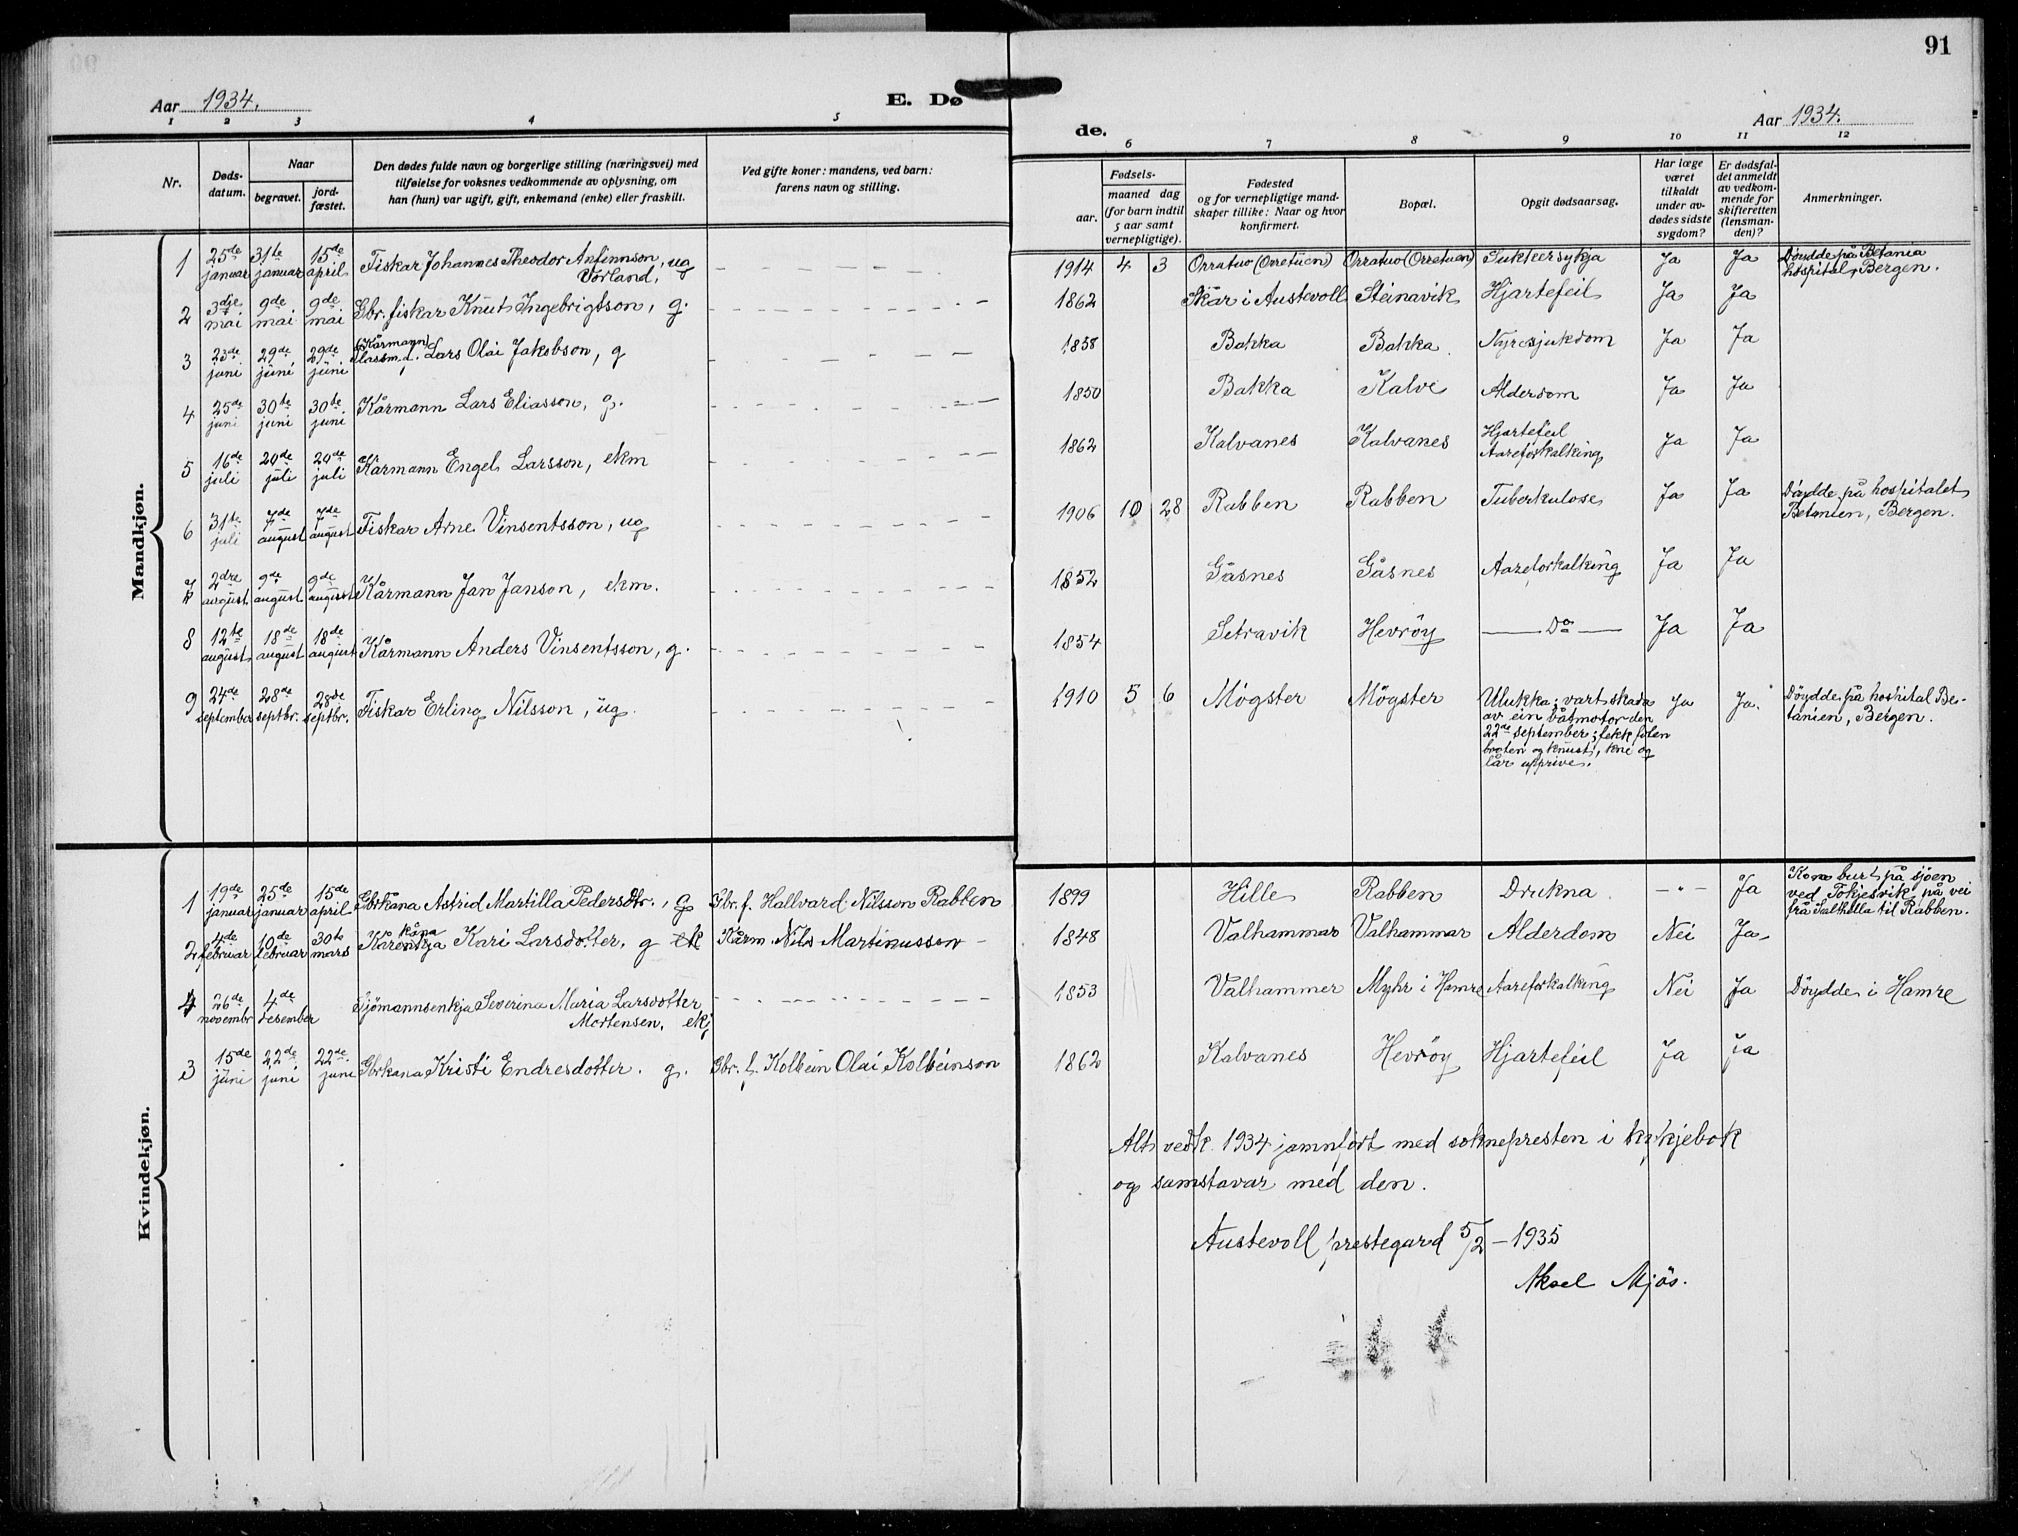 91
Aar 1934.
E. Dø
de.
Aar 1934.
1 2 3 4 5 6 7 8 9 10 11 12
Nr.
Døds-
datum.
Naar
begravet.
jord-
fæstet.
Den dødes fulde navn og borgerlige stilling (næringsvei) med
tilføielse for voksnes vedkommende av oplysning, om
han (hun) var ugift, gift, enkemand (enke) eller fraskilt.
Ved gifte koner: mandens, ved barn:
farens navn og stilling.
Fødsels-
aar.
maaned dag
(for barn indtil
5 aar samt
vernepligtige).
Fødested
og for vernepligtige mand-
skaper tillike: Naar og hvor
konfirmert.
Bopæl.
Opgit dødsaarsag.
Har læge
været
tilkaldt
under av-
dødes sidste
sygdom?
Er dødsfal-
det anmeldt
av vedkom-
mende for
skifteretten
(lensman-
den)?
Anmerkninger.
Mandkjøn.
1 25de januar 31te januar 15de april Fiskar Johannes Theodor Anfinnson, ug
Vorland.
1914 4 3 Orratuo (Orretuen) Orratuo (Orretuen) Sukkersykja Ja Ja Døydde på Betania
hospital, Bergen.
2 3dje mai 9de mai 9de mai Gbr. fiskar Knut Ingebrigtson, g. 1862 Skår i Austevoll Steinavik Hjartefeil Ja Ja
3 23de juni 29de juni 29de juni (Kårmann) Lars Olai Jakobson, g 1858 Bakka Bakka Nyresjukdom Ja Ja
4 25de juni 30te juni 30te juni Kårmann Lars Eliasson, g. 1850 Bakka Kalve Alderdom Ja Ja
5 16de juli 20de juli 20de juli Kårmann Engel Larsson, ekm 1862 Kalvanes Kalvanes Hjartefeil
Aareforkalking Ja Ja
6 31te juli 7de august 7de august Fiskar Arne Vinsentsson, ug 1906 10 28 Rabben Rabben Tuberkulose Ja Ja Døydde på hospitalet
Betanien, Bergen.
7 2dre august 9de august 9de august Kårmann Jan Janson, ekm. 1852 Gåsnes Gåsnes Aareforkalking Ja Ja
8 12te august 18de august 18de august Kårmann Anders Vinsentsson, g. 1854 Setravik Hevrøy Do Ja Ja
9 24de september 28de septbr. 28de septbr. Fiskar Erling Nilsson, ug. 1910 5 6 Møgster Møgster Ulukka; vart skada
av ein båtmotor den
22de september; fekk foten
broten og knust, kne og
lår upprive. Ja Ja. Døydde på hospital Be-
tanien, Bergen.
Kvindekjøn.
1 19de januar 25de januar 15de april Gbrkana Astrid Martilla Pedersdtr., g Gbr. f. Hallvard Nilsson Rabben 1899 Hille Rabben Drukna - " - Ja Kom burt på sjøen
ved Tokjesvik på vei
frå Salthella til Rabben.
2 4de februar 10de februar 30te mars Kårenkja kåna Kari Larsdotter. g ek Kårm. Nils Martinusson 1848 Valhammar Valhammar Alderdom Nei Ja
4 26de novembr 4de desember Sjömannsenkja Severina Maria Larsdotter
Mortensen, ekj
1853 Valhammer Myhr i Hamre Aareforkalking Nei Ja Døydde i Hamre
3 15de juni 22de juni 22de juni Gbrkana Kristi Endresdotter. g. Gbr. f. Kolbein Olai Kolbeinson 1862 Kalvanes Hevrøy Hjartefeil Ja Ja
Alt vedk. 1934 jamnført med soknepresten i kyrkjebok
og samstavar med den.
Austevoll prestegard 5/2 - 1935
Aksel Mjøs.